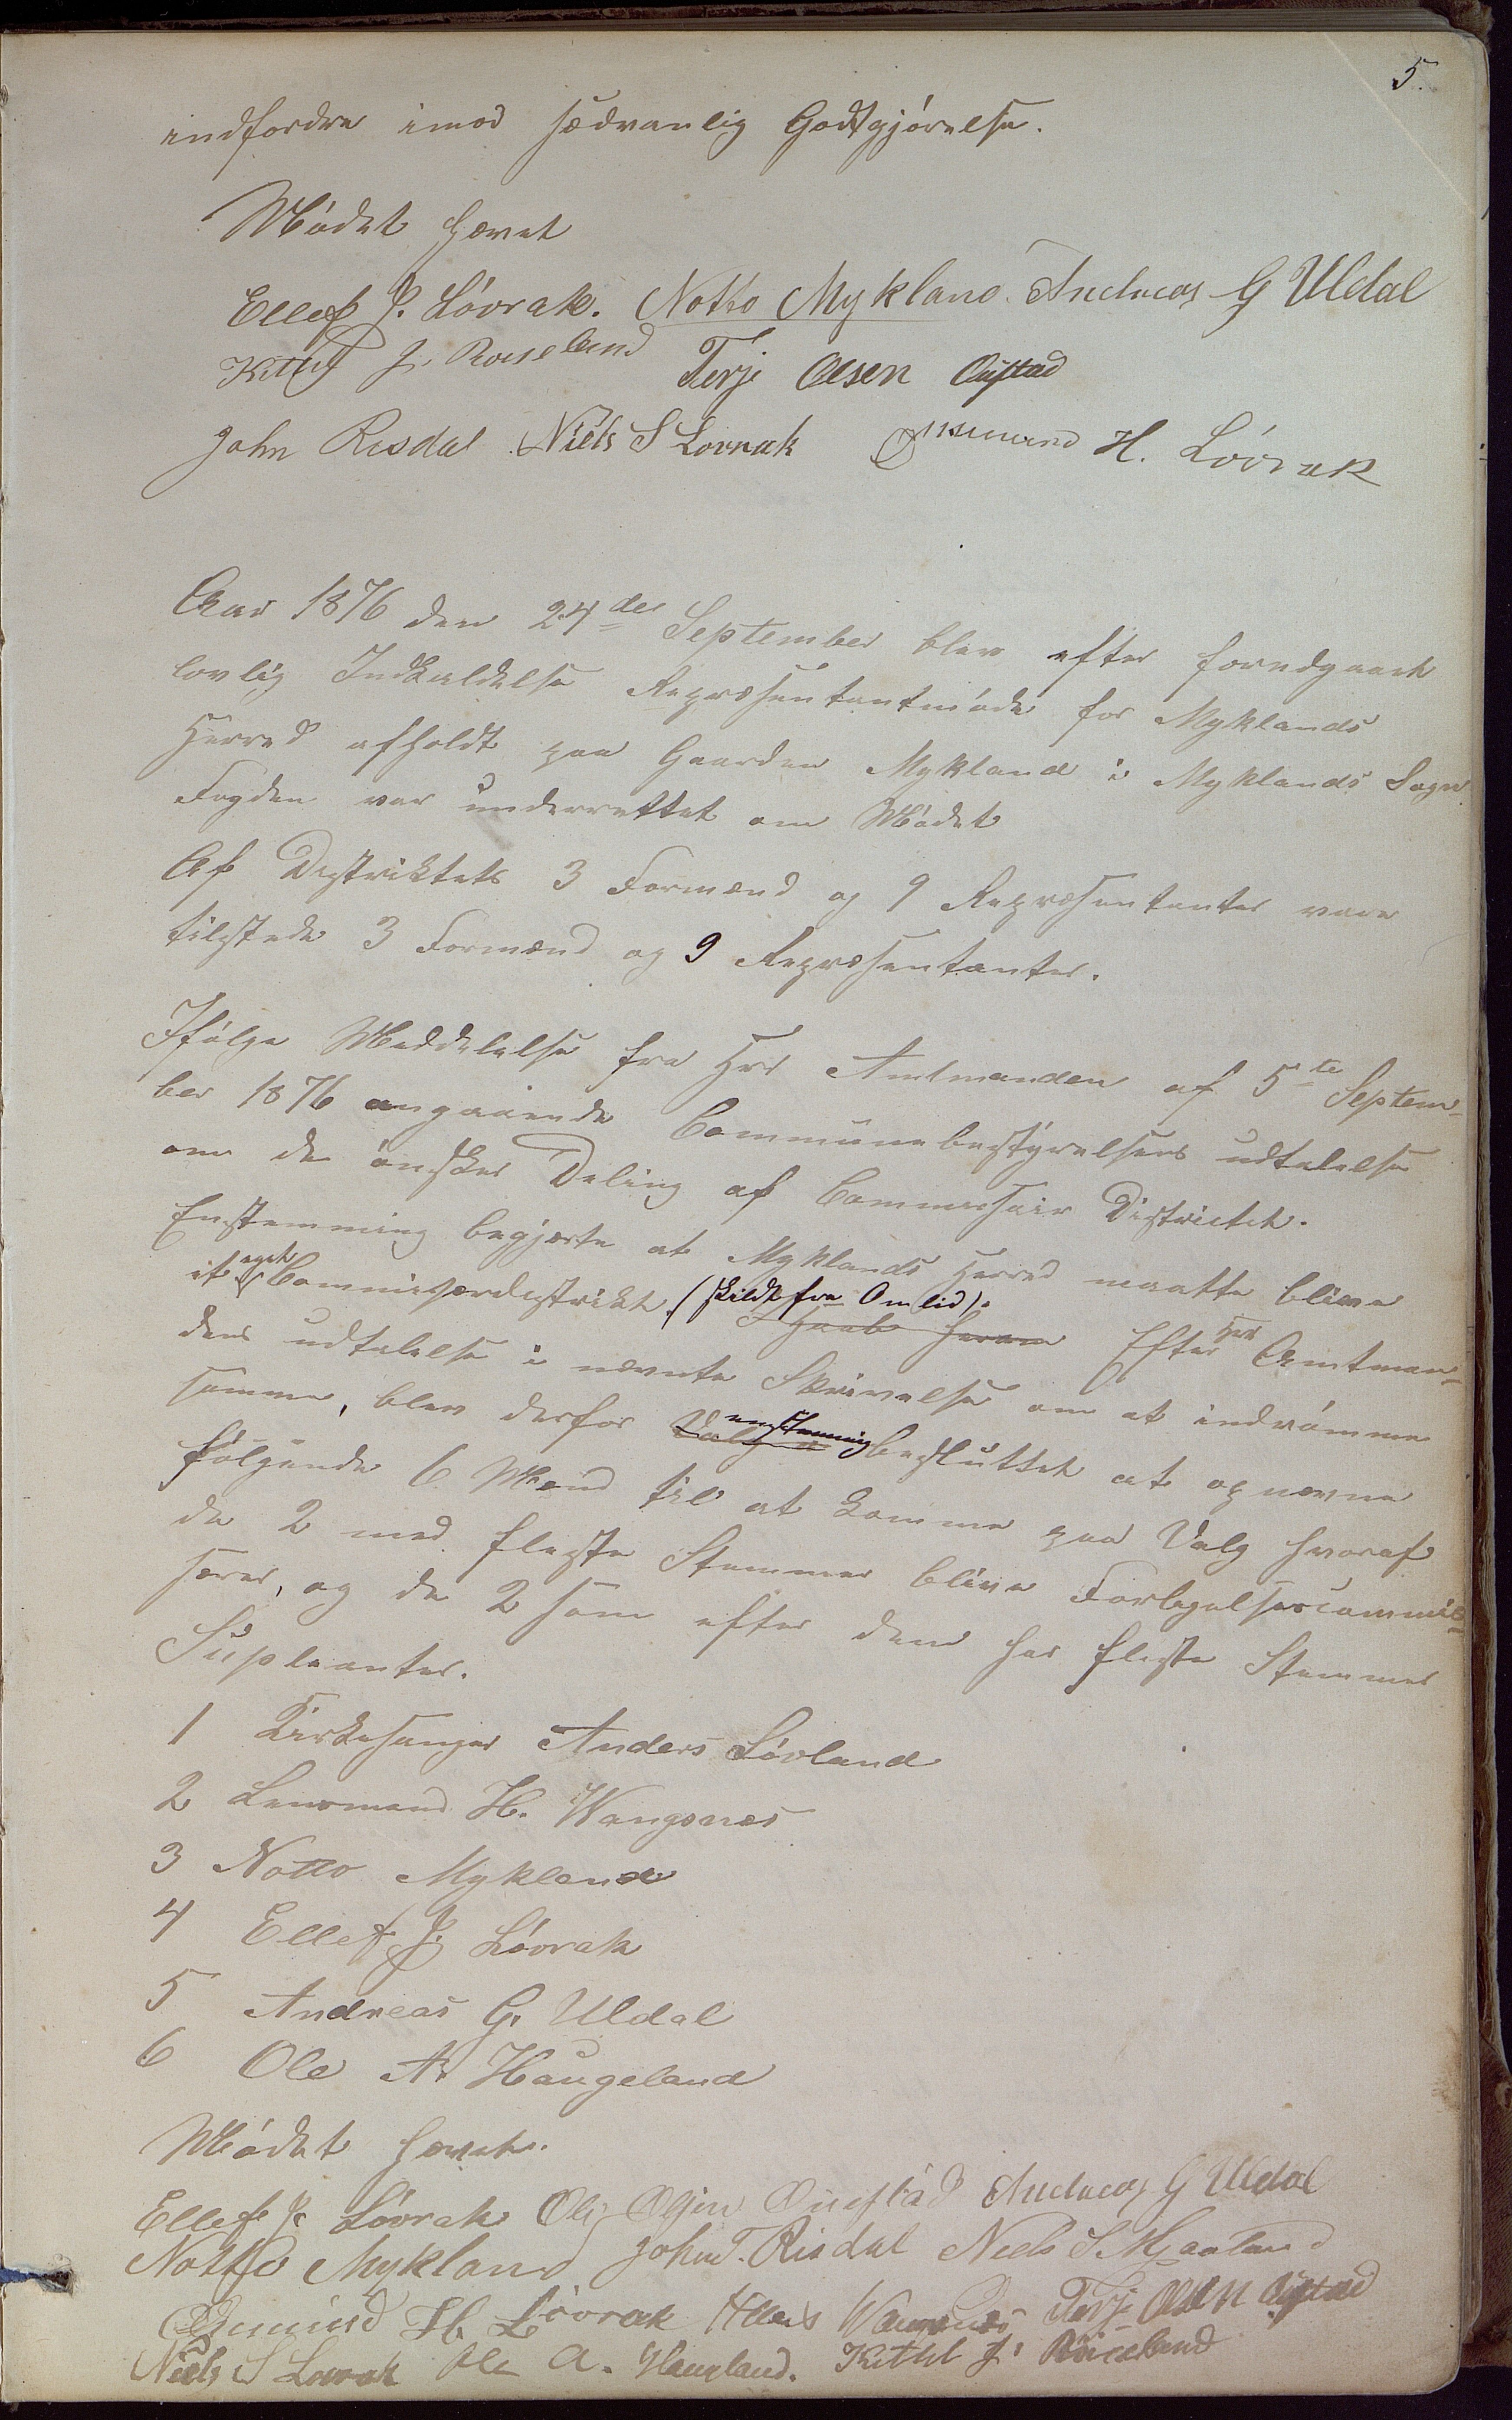 5.
indfordre imod sædvanlig Godtgjørelse.
Mødet hævet
Ellef J. Løvrak. Notto Mykland. Andreas G Uldal
J. Roiseland Terje Olsen Austad
John Risdal Niels S Lovrak Osmund H. Løvrak
Aar 1876 den 24de September blev efter foregaaet
lovlig Indkaldelse Repræsentantmøde for Myklands
Herred afholdt paa Gaarden Mykland i Myklands Sogn
Fogden var underrettet om Mødet
Af Distriktets 3 Formænd og 9 Repræsentanter vare
tilstede 3 Formænd og 9 Repræsentanter.
Ifølge Meddelelse fra Hrr Amtmanden af 5te Septem-
ber 1876 angaaende Communebestyrelsens udtalelse
om de ønsker Deling af Commissair Districtet.
Enstemming begjærte at Myklands Herred maatte blive
it eget Commissærdistrikt (skildt fra Omlid).
Efter Hrr Amtman-
dens udtalelse i nævnte Skrivelse om at indrømme
samme, blev derfor enstemmig besluttet at opnævne
følgende 6 Mænd til at komme paa Valg hvoraf
de 2 med fleste Stemmer blive Forligelsescommis-
særer, og de 2 som efter dem har fleste Stemmer
Supleanter.
1 Kirkesanger Anders Løvland
2 Lensmand H. Wangsnes
3 Notto Mykland
4 Ellef J. Løvrak
5 Andreas G. Uldal
6 Ole A. Haugeland
Mødet hævet.
Ellef J. Løvrak Ole Olsen Andreas G Uldal
Notto Mykland John T. Risdal Niels S Mjaaland
Osmund H. Løvrak Wangsnes Terje Olsen Austad
Niels S Lovrak Ole A. Haugland. Kittel J. Roiseland